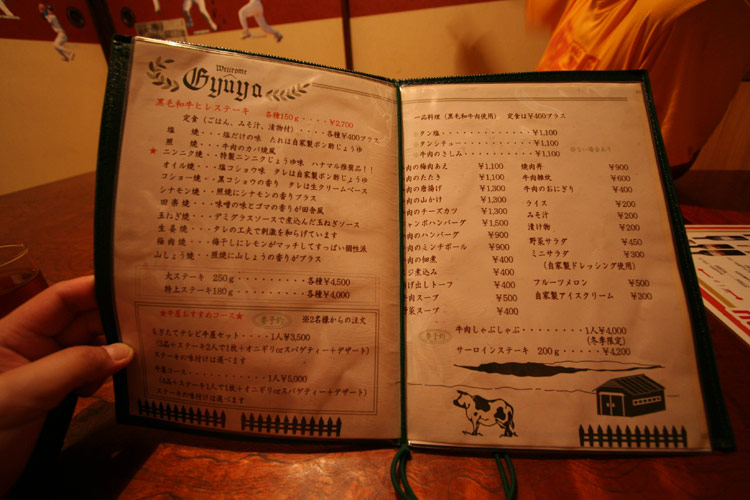 Wellcome
Gyuya
黒毛和牛ヒレステーキ 各種150g・・・・¥2,700
定食(ごはん、みそ汁、漬物付)・・・・・各種¥400プラス
塩 焼・・・塩だけの味 たれは自家製ポン酢じょうゆ
照 焼・・・牛肉のカバ焼風
★ニンニク焼・・特製ニンニクじょうゆ味 ハナマル推薦品!!
オイル焼・・塩コショウ味 タレは自家製ポン酢じょうゆ
コショー焼・・黒コショウの香り タレは生クリームベース
シナモン焼・・照焼にシナモンの香りプラス
田楽焼・・・味噌の味とゴマの香りが田舎風
玉ねぎ焼・・デミグラスソースで煮込んだ玉ねぎソース
生姜焼・・・タレの工夫で刺激を和らげています
梅肉焼・・・梅干しにレモンがマッチしてすっぱい個性派
山しょう焼・・照焼に山しょうの香りがプラス
大ステーキ 250g・・・・・・・・・各種¥4,500
特上ステーキ180g・・・・・・・・・各種¥4,000
★牛屋おすすめコース★ 要予約 ※2名様からの注文
もぎたてテレビ牛屋セット・・・・1人¥3,500
(3品+ステーキ2人で1枚+オニギリorスパゲティー+デザート)
ステーキの味付けは選べます
牛屋コース・・・・・・・・・・・1人¥5,000
(4品+ステーキ1人で1枚+オニギリorスパゲティー+デザート)
ステーキの味付けは選べます
一品料理(黒毛和牛肉使用) 定食は¥400プラス
○タン塩・・・・・・・・・・¥1,100
○タンシチュー・・・・・・・¥1,100
○牛肉のさしみ・・・・・・・¥1,100
肉の梅肉あえ ¥1,100
肉のたたき ¥1,100
肉の唐揚げ ¥1,300
肉の山かけ ¥1,300
肉のチーズカツ ¥1,300
ャンボハンバーグ ¥1,300
肉のハンバーグ ¥900
肉のミンチボール ¥900
肉の佃煮 ¥400
ジ煮込み ¥400
げ出しトーフ ¥400
肉スープ ¥500
菜スープ ¥400
焼肉丼 ¥900
牛肉雑炊 ¥600
牛肉のおにぎり ¥400
ライス ¥200
みそ汁 ¥200
漬け物 ¥200
野菜サラダ ¥450
ミニサラダ ¥300
(自家製ドレッシング使用)
フルーツメロン ¥500
自家製アイスクリーム ¥300
要予約 牛肉しゃぶしゃぶ・・・・・・・・1人¥4,000
(冬季限定)
サーロインステーキ 200g・・・・・¥4,200